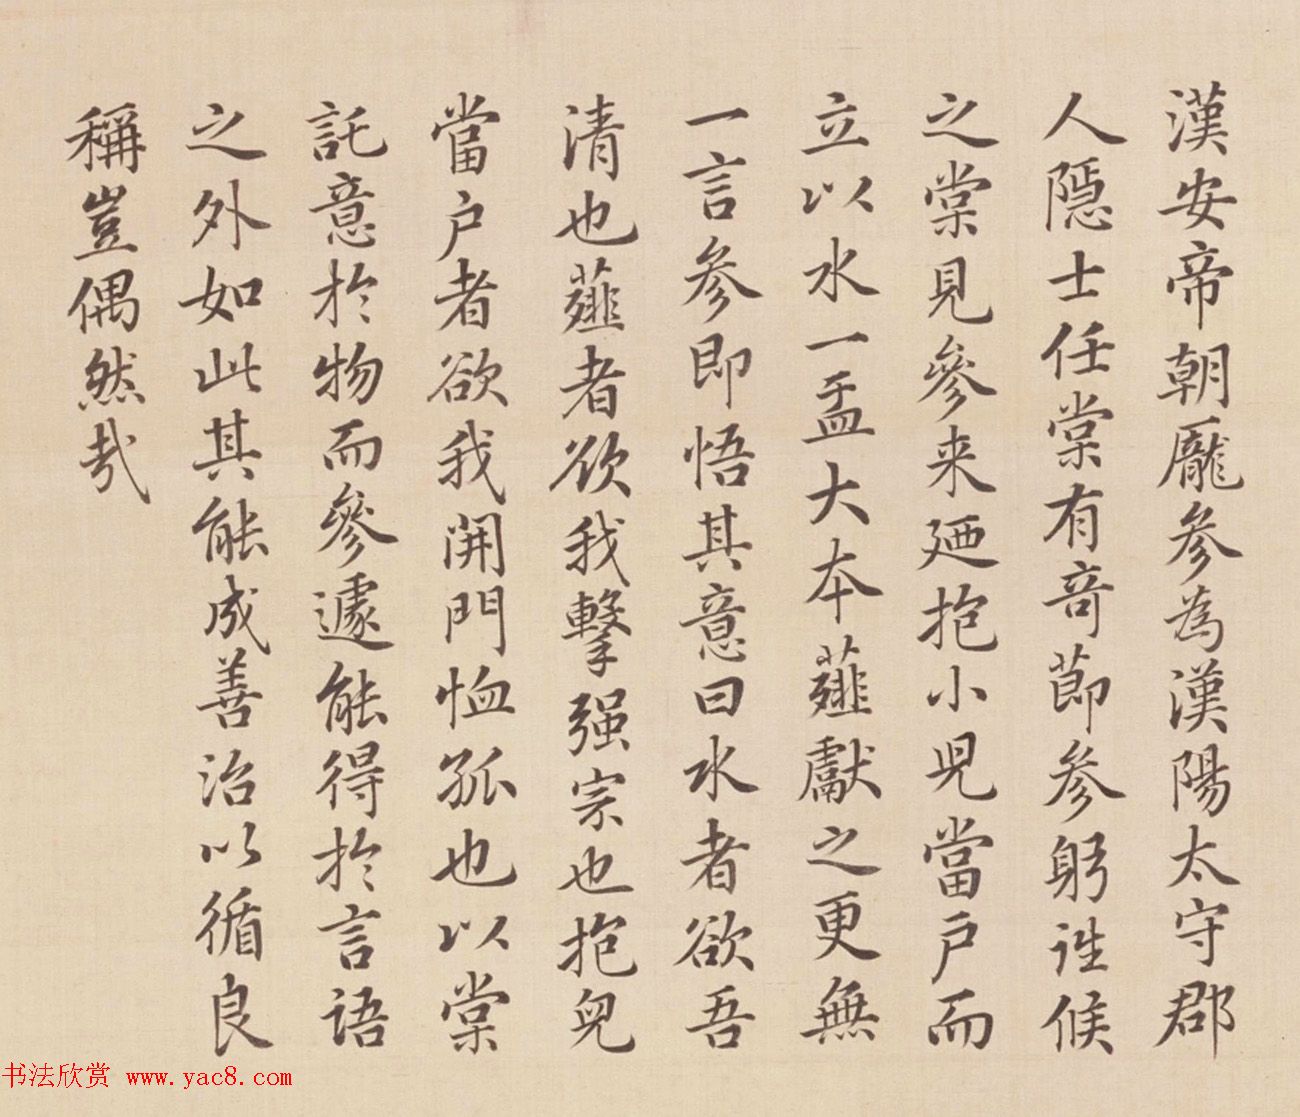 漢安帝朝龐參為漢陽太守郡
人隱士任棠有奇節参躬詣候
之棠見參来廼抱小兒當戶而
立以水一盂大本薤獻之更無
一言参即悟其意曰水者欲吾
清也薤者欲我擊强宗也抱兒
當戶者欲我開門恤孤也以棠
託意於物而參遽能得於言語
之外如此其能成善治以循良
稱豈偶然哉
书法欣赏 www.yac8.com